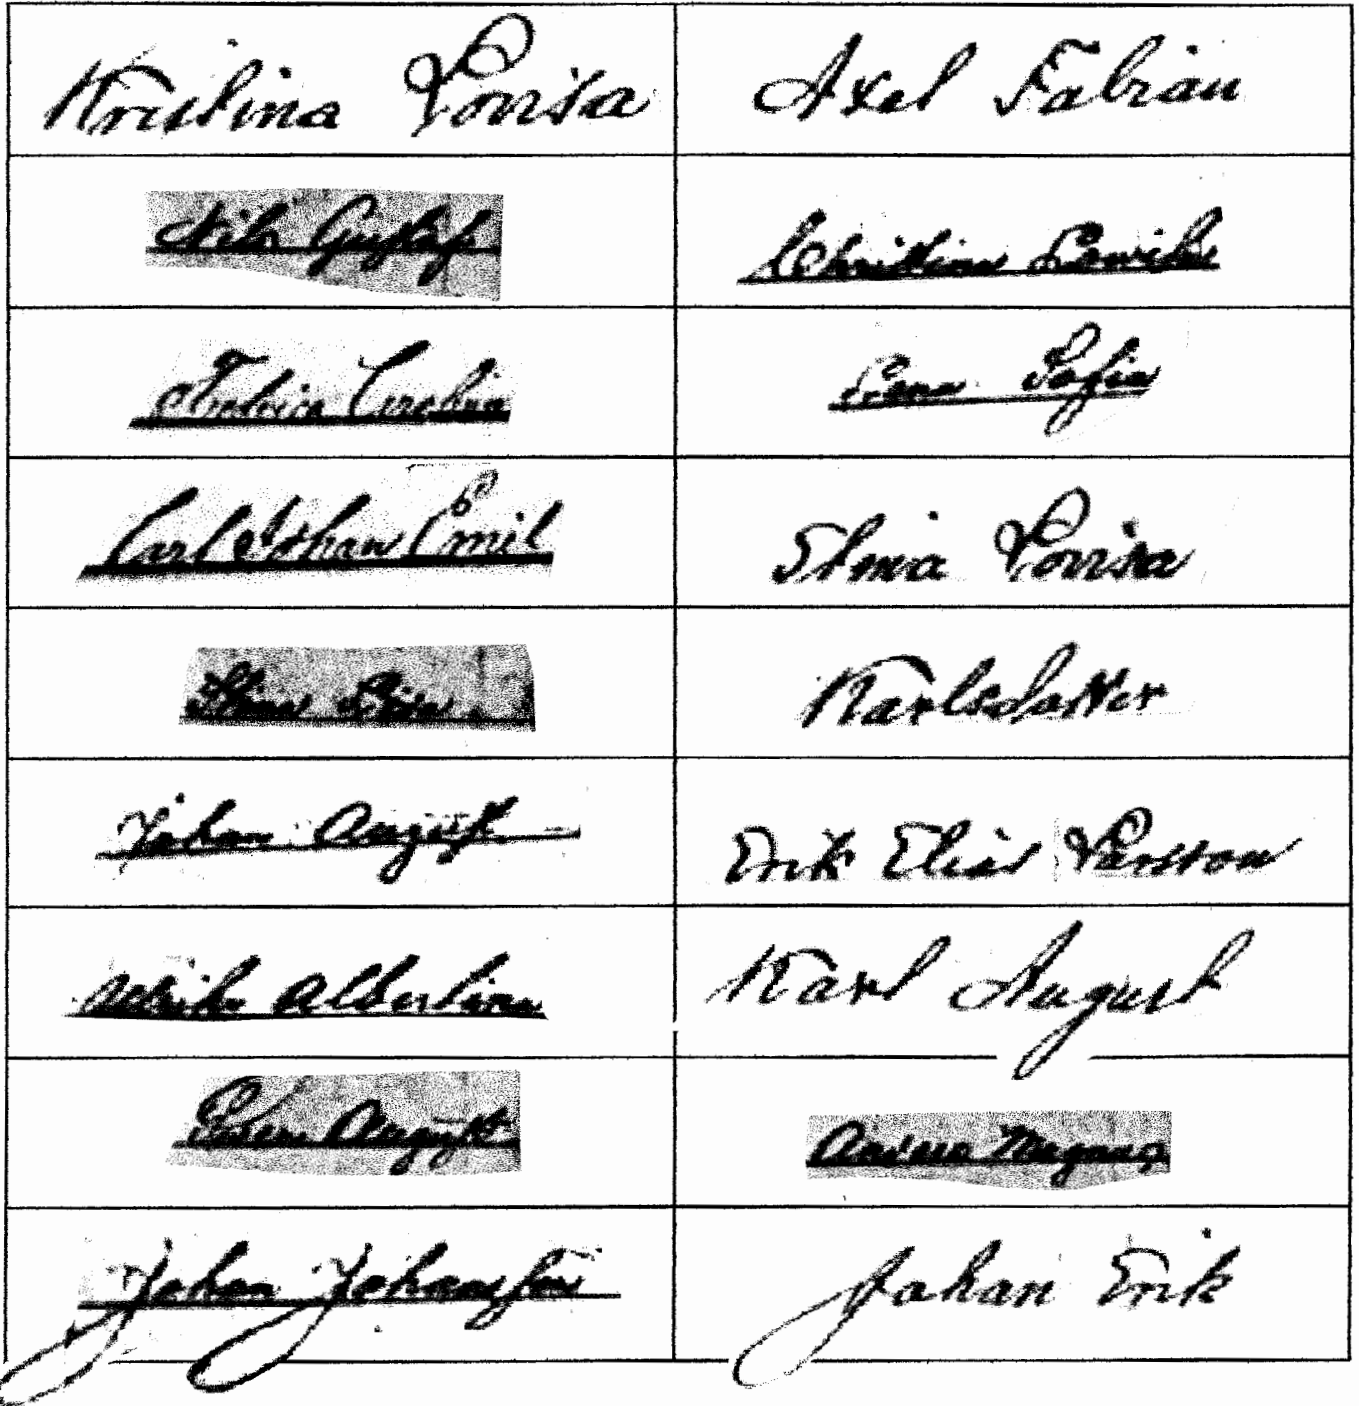 Kristina Lovisa
Axel Fabian
Nils Gustaf
Christina Lovisa
Carolina
Lena Sofia
Carl Johan Emil
Stina Lovisa
Stina Lisa
Karlsdotter
Johan August
Erik Elias Persson
Ulrika Albertina
Karl August
August
Anders Magnus
Johan Johansson
Johan Erik